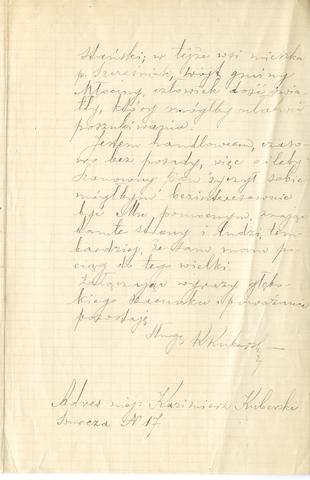 stański; w tejże wsi mieszka
p. Szcześniak, wójt gminy
Młociny, człowiek dość świa-
tły, który mógłby ułatwić
poszukiwania.
Jestem handlowcem, czaso-
wo bez posady, więc o ileby
Szanowny Pan życzył sobie
mógłbym bezinteresownie
być Mu pomocnym, znając
tamte strony i ludzi, tem-
bardziej, że sam mam po-
ciąg do tego wielki.
Załączając wyrazy głębo-
kiego szacunku i poważania
pozostaję
Sługa KKuberski
Adres mój: Kazimierz Kuberski
Smocza N 17